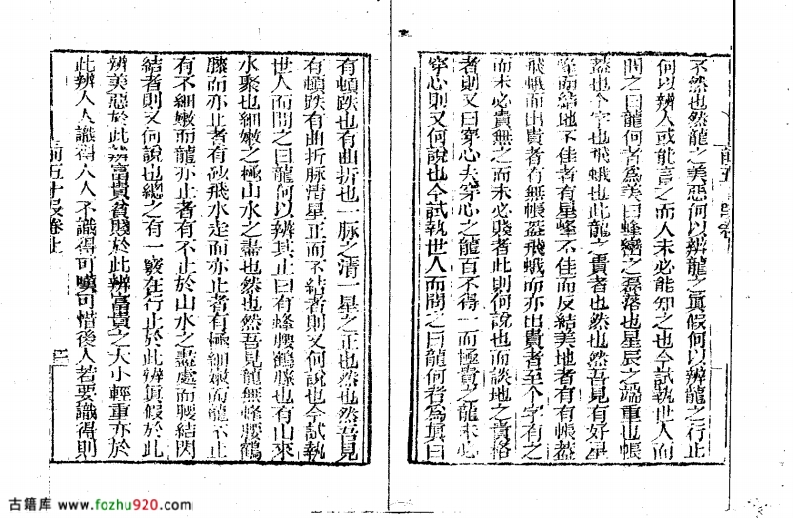 不然也然龍之美惡何以辨龍之眞假何以辨龍之行止
何以辨人或能言之而人未必能知之也今試執世人而
問之曰龍何者為美曰峰巒之磊落也星辰之端重也帳
蓋也个字也飛蛾也此龍之貴者也然也然吾見有好星
峯而結地不佳者有星峰不佳而反結美地者有有帳蓋
飛蛾而出貴者有無帳蓋飛蛾而亦出貴者至个字有之
而未必貴無之而未必賤者此則何說也而談地之貴格
者則又曰穿心夫穿心之龍百不得一而極貴之龍未必
穿心則又何說也今試執世人而問之曰龍何者為眞曰
有頓跌也有曲折也一脉之清一星之正也然也然吾見
有頓跌有曲折脉清星正而不結者則又何說也今試執
世人而問之曰龍何以辨其止曰有蜂腰鶴膝也有山來
水聚也細嫩之極山水之盡也然也然吾見龍無蜂腰鶴
膝而亦止者有砂飛水走而亦止者有極細嫩而龍不止
有不細嫩而龍亦止者有不止於山水之盡處而腰結閃
結者則又何說也總之有一竅在行止於此辨眞假於此
辨美惡於此辨富貴貧賤於此辨富貴之大小輕重亦於
此辨人人識得人人不識得可嘆可惜後人若要識得則
卷上
古籍库 www.fozhu920.com